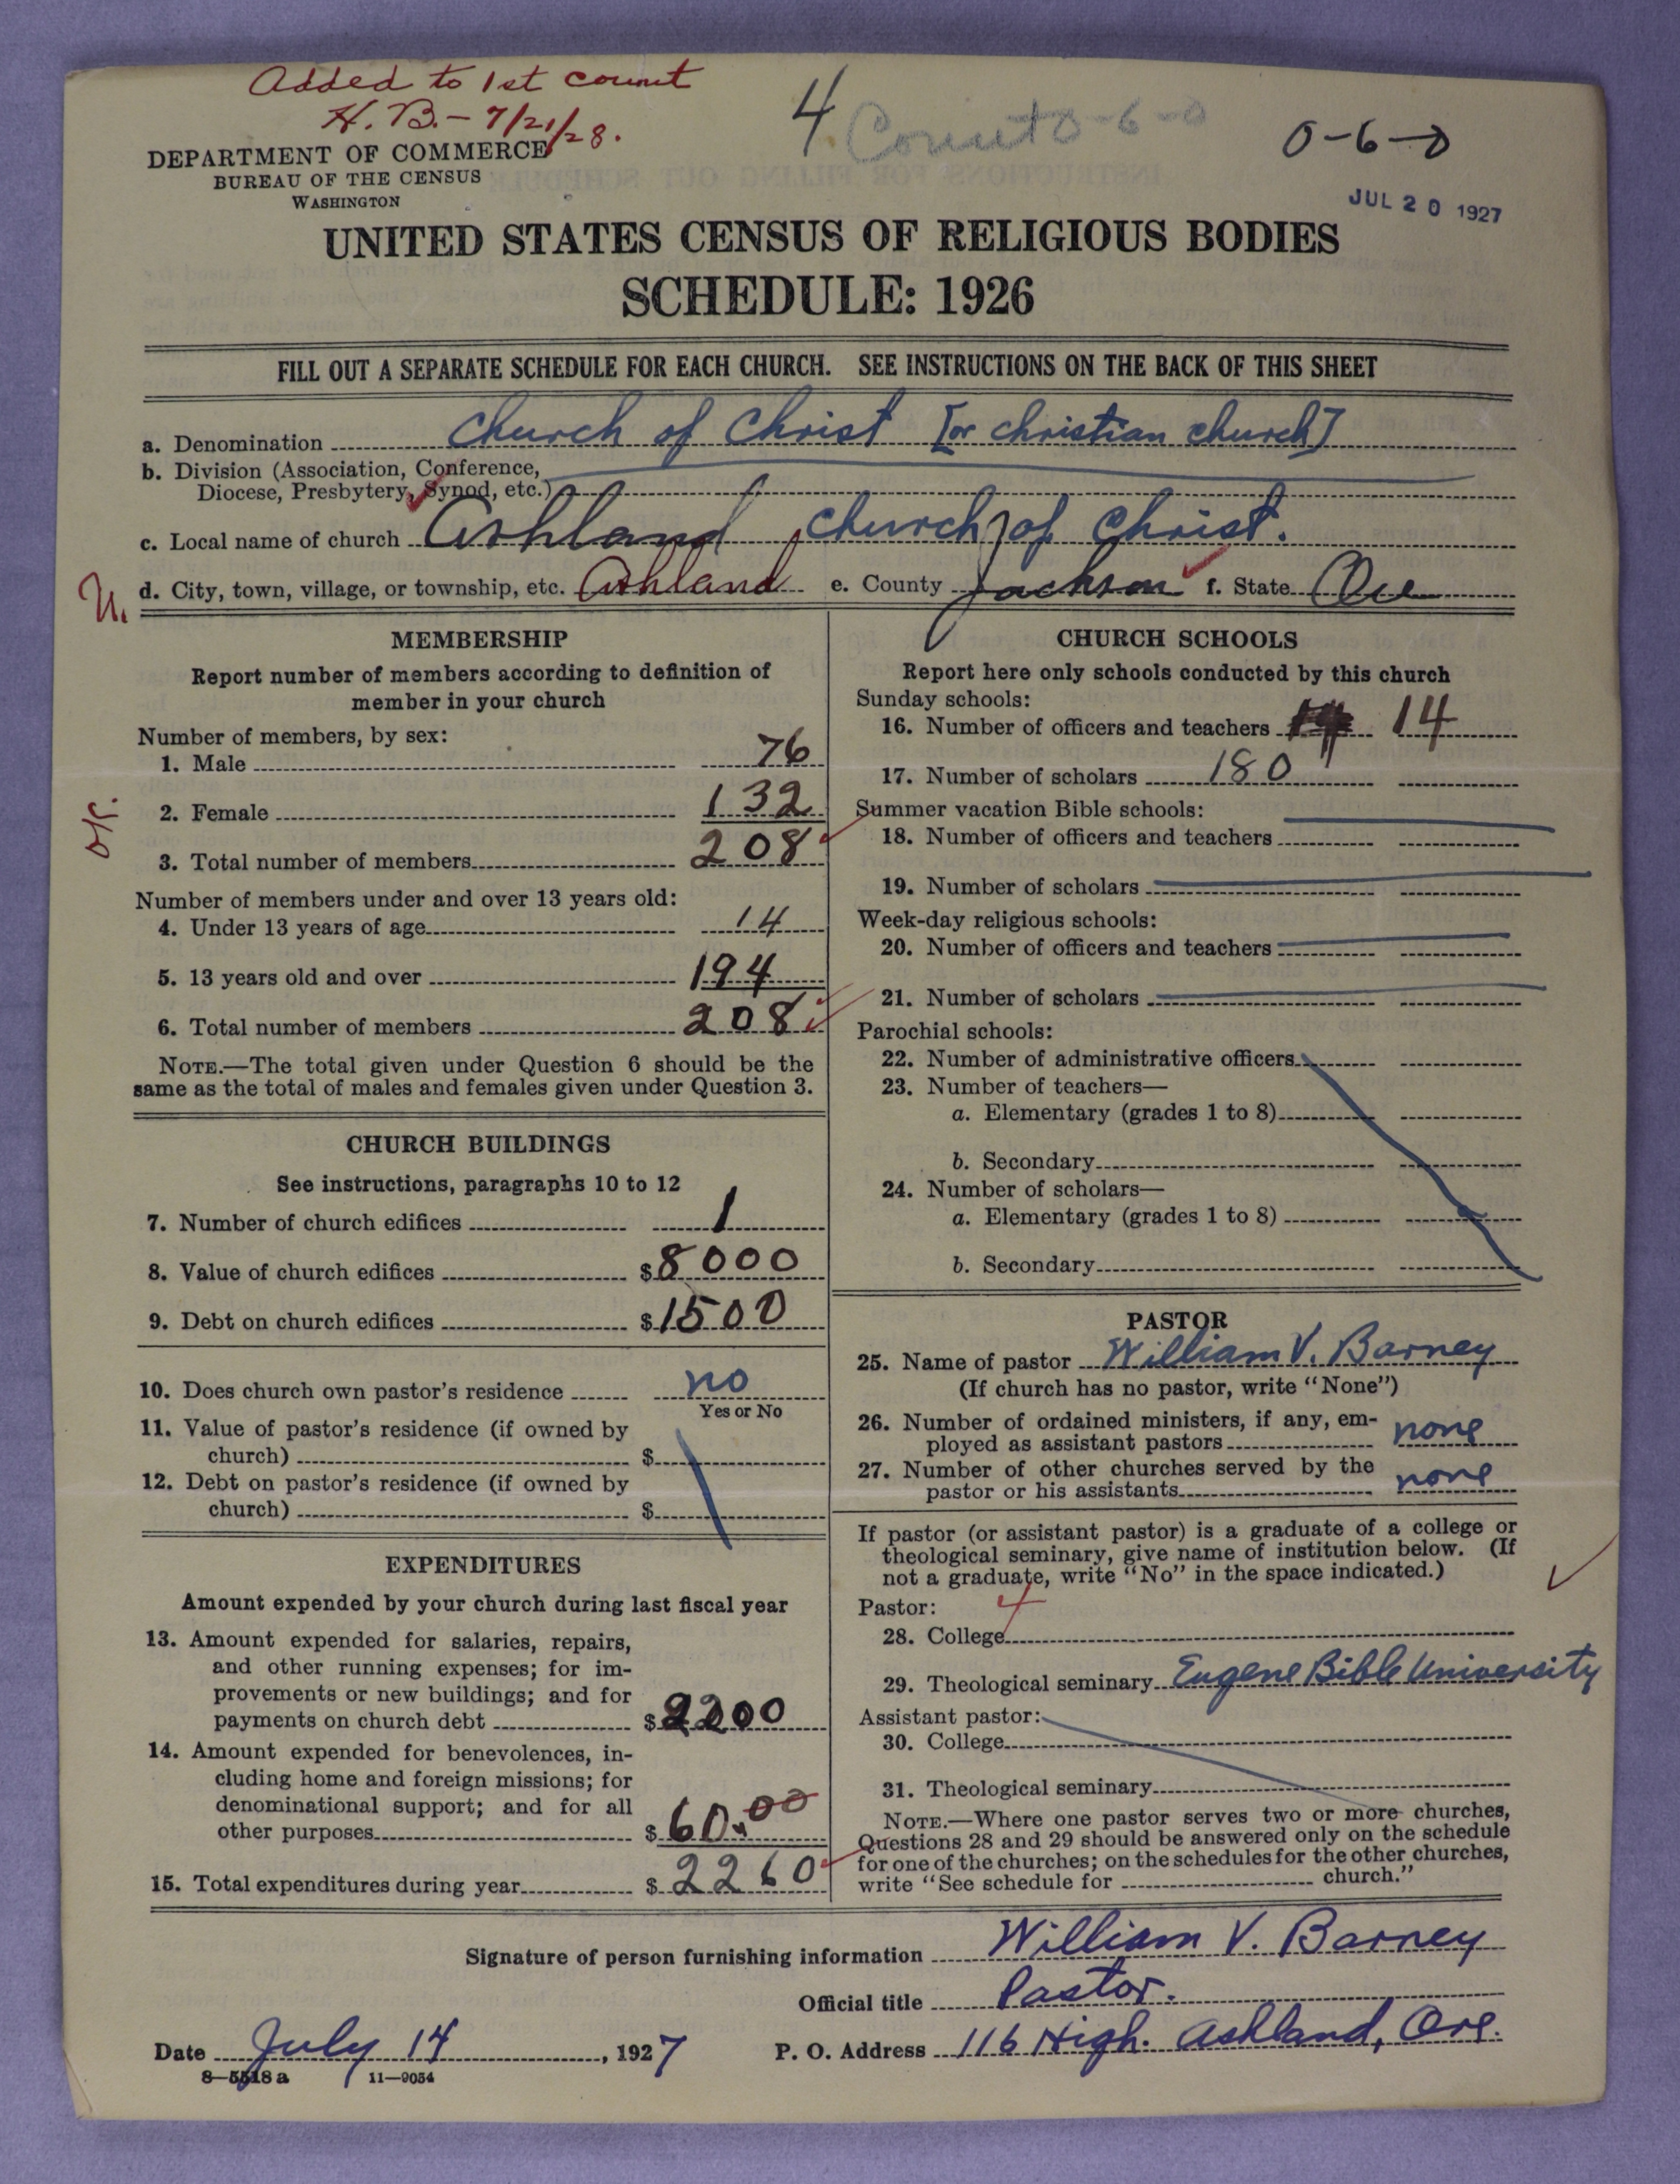 Added to 1st count
H. B. - 7/21/28.
4 Count 0-6-0
0-6-0
DEPARTMENT OF COMMERCE
BUREAU OF THE CENSUS
WASHINGTON
JUL 20 1927
UNITED STATES CENSUS OF RELIGIOUS BODIES
SCHEDULE: 1926
FILL OUT A SEPARATE SCHEDULE FOR EACH CHURCH. SEE INSTRUCTIONS ON THE BACK OF THIS SHEET
a. Denomination Church of Christ [or christian church]
b. Division (Association, Conference,
Diocese, Presbytery, Synod, etc.)
c. Local name of church Ashland church of Christ.
d. City, town, village, or township, etc. Ashland e. County Jackson f. State Ore
MEMBERSHIP
Report number of members according to definition of
member in your church
Number of members, by sex:
1. Male 76
2. Female 132
3. Total number of members 208
Number of members under and over 13 years old:
4. Under 13 years of age 14
5. 13 years old and over 194
6. Total number of members 208
NOTE.—The total given under Question 6 should be the
same as the total of males and females given under Question 3.
CHURCH BUILDINGS
See instructions, paragraphs 10 to 12
7. Number of church edifices 1
8. Value of church edifices $8000
9. Debt on church edifices $1500
10. Does church own pastor's residence no
Yes or No
11. Value of pastor's residence (if owned by
church) $
12. Debt on pastor's residence (if owned by
church) $
EXPENDITURES
Amount expended by your church during last fiscal year
13. Amount expended for salaries, repairs,
and other running expenses; for im-
provements or new buildings; and for
payments on church debt $2200
14. Amount expended for benevolences, in-
cluding home and foreign missions; for
denominational support; and for all
other purposes $60.00
15. Total expenditures during year $2260
CHURCH SCHOOLS
Report here only schools conducted by this church
Sunday schools:
16. Number of officers and teachers 14
17. Number of scholars 180
Summer vacation Bible schools:
18. Number of officers and teachers
19. Number of scholars
Week-day religious schools:
20. Number of officers and teachers
21. Number of scholars
Parochial schools:
22. Number of administrative officers
23. Number of teachers—
a. Elementary (grades 1 to 8)
b. Secondary
24. Number of scholars—
a. Elementary (grades 1 to 8)
b. Secondary
PASTOR
25. Name of pastor William V. Barney
(If church has no pastor, write "None")
26. Number of ordained ministers, if any, em-
ployed as assistant pastors none
27. Number of other churches served by the
pastor or his assistants none
If pastor (or assistant pastor) is a graduate of a college or
theological seminary, give name of institution below. (If
not a graduate, write "No" in the space indicated.)
Pastor: 4
28. College
29. Theological seminary Eugene Bible University
Assistant pastor:
30. College
31. Theological seminary
NOTE.—Where one pastor serves two or more churches,
Questions 28 and 29 should be answered only on the schedule
for one of the churches; on the schedules for the other churches,
write "See schedule for church."
Signature of person furnishing information William V. Barney
Official title Pastor.
Date July 14, 1927 P. O. Address 116 High. Ashland, Ore.
8—5518 a 11—9054